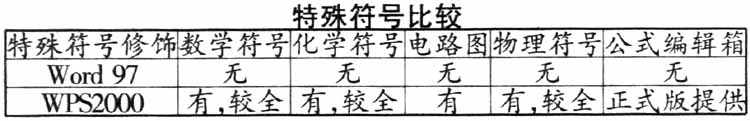 特殊符号比较
特殊符号修饰 数学符号 化学符号 电路图 物理符号 公式编辑箱
Word 97 无 无 无 无 无
WPS2000 有,较全 有,较全 有 有,较全 正式版提供